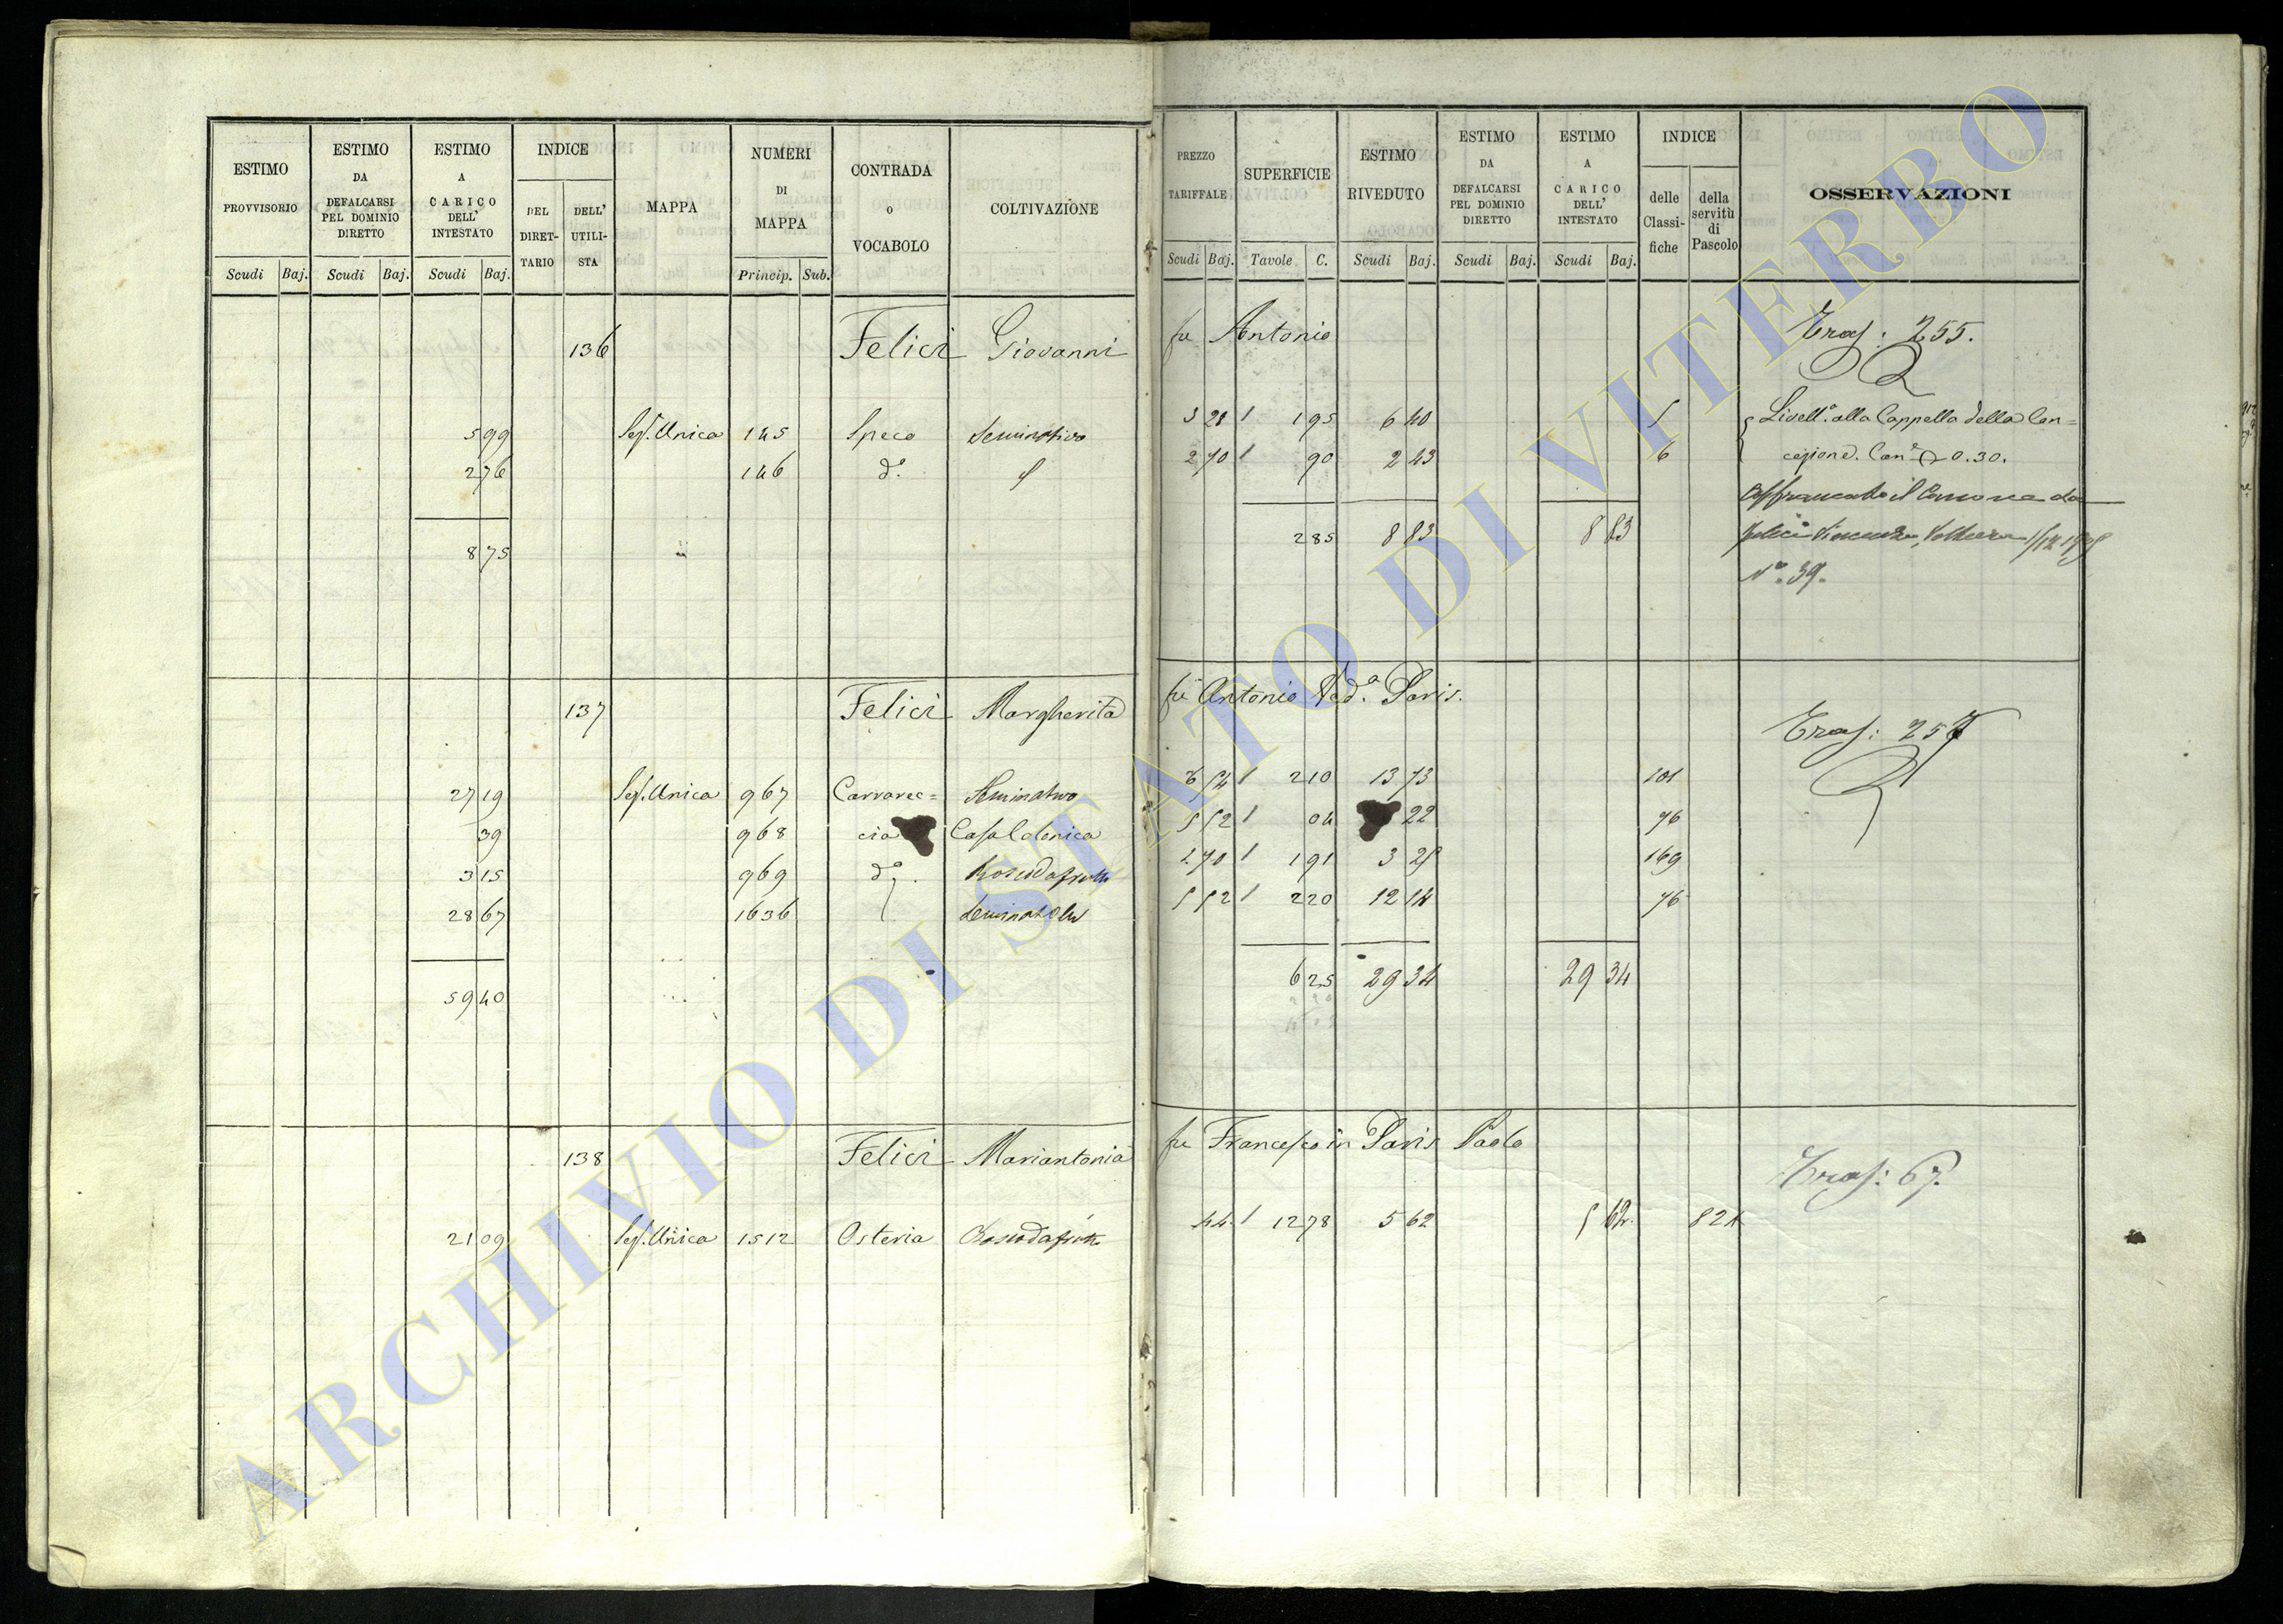 ESTIMO PROVVISORIO Scudi Baj.
ESTIMO DA DEFALCARSI PEL DOMINIO DIRETTO Scudi Baj.
ESTIMO A CARICO DELL' INTESTATO Scudi Baj.
INDICE DEL DIRET-TARIO DELL' UTILI-STA
MAPPA
NUMERI DI MAPPA Princip. Sub.
CONTRADA o VOCABOLO
COLTIVAZIONE
PREZZO TARIFFALE Scudi Baj.
SUPERFICIE Tavole C.
ESTIMO RIVEDUTO Scudi Baj.
ESTIMO DA DEFALCARSI PEL DOMINIO DIRETTO Scudi Baj.
ESTIMO A CARICO DELL' INTESTATO Scudi Baj.
INDICE delle Classi-fiche della servitù di Pascolo
OSSERVAZIONI
136 Felici Giovanni fu Antonio Tras: 255.
5 99 Sez. Unica 145 Speco Seminativo 3 28 1 95 6 40 5 Livell.º alla Cappella della Con=
2 76 146 dº. 2 70 90 2 43 6 cezione. Can.e 0.30.
Affrancato il Canone da
8 75 2 85 8 83 8 83 Felici Vincenzo, Voltura
Nº. 39.
137 Felici Margherita fu Antonio Ved.ª Paris. Tras: 257
27 19 Sez. Unica 967 Carrarec= Seminativo 6 54 2 10 13 73 101
39 968 cia Casa Colonica 5 52 04 22 76
3 15 969 dº. 1 91 3 28 169
28 67 1636 5 52 2 20 12 14 76
59 40 6 25 29 34 29 34
138 Felici Mariantonia fu Francesco in Paris Paolo Tras: 67.
21 09 Sez. Unica 1512 Osteria 44 12 78 5 62 5 62 821
ARCHIVIO DI STATO DI VITERBO